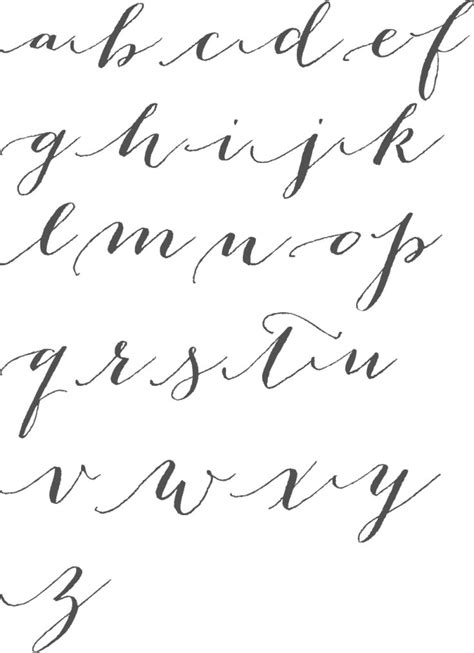 a b c d e f
g h i j k
l m n o p
q r s t u
v w x y
z